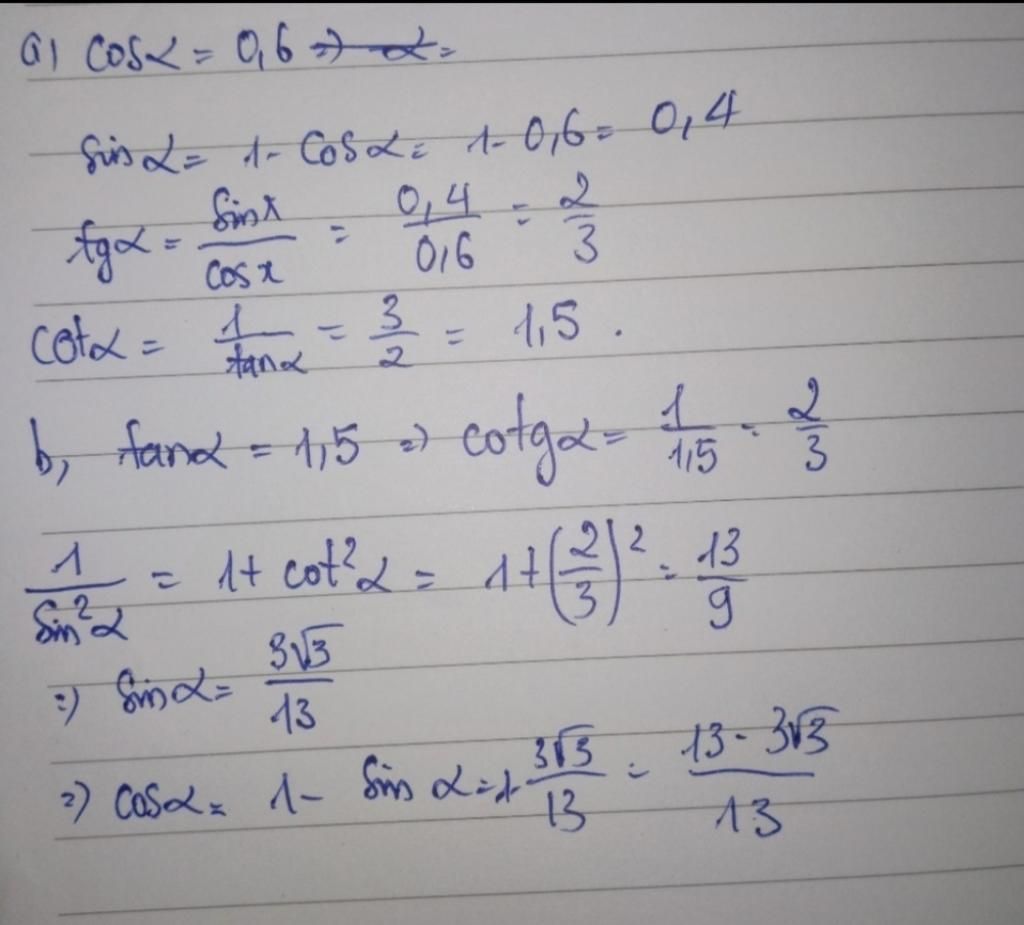 a) cosα = 0,6 ⇒ α =
sin α = 1 - cosα = 1 - 0,6 = 0,4
tgα = sinx/cosx = 0,4/0,6 = 2/3
cotα = 1/tanα = 3/2 = 1,5 .
b, tanα = 1,5 ⇒ cotgα = 1/1,5 = 2/3
1/sin²α = 1 + cot²α = 1 + (2/3)² = 13/9
⇒ sinα = 3√3/13
⇒ cosα = 1 - sin α = 1 - 3√3/13 = 13 - 3√3/13